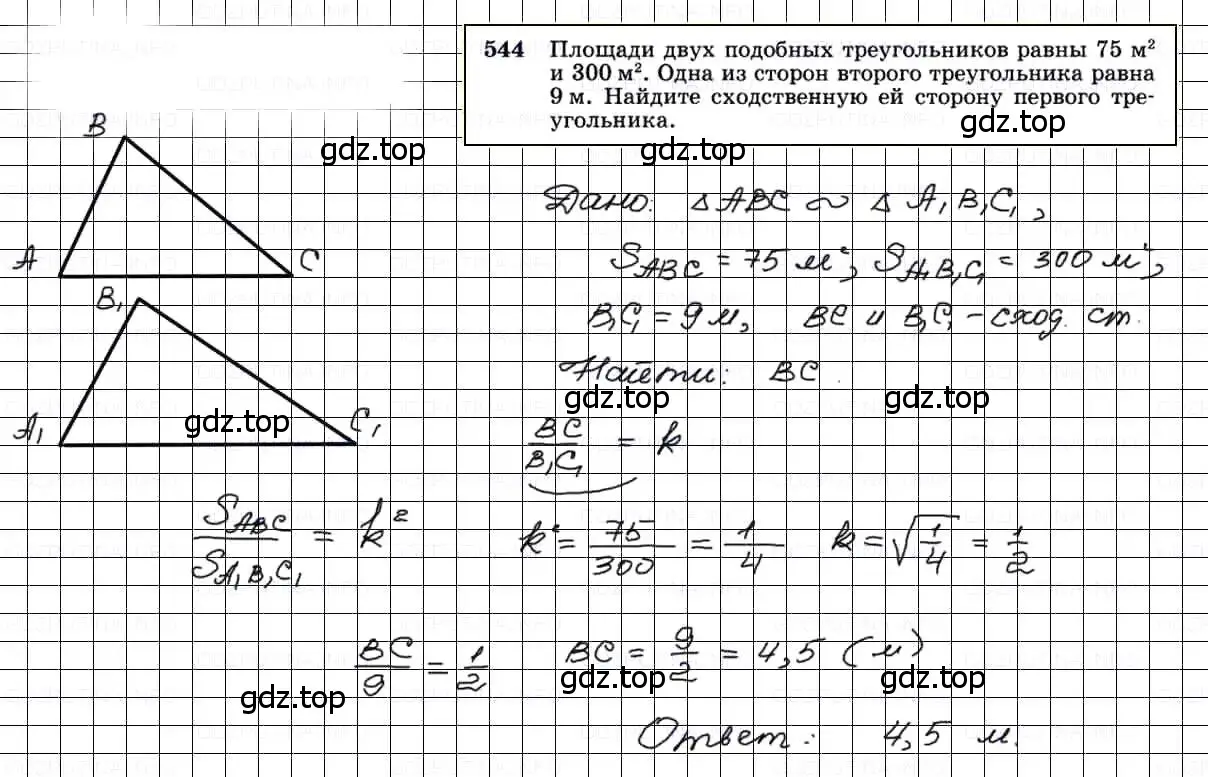 544 Площади двух подобных треугольников равны 75 м²
и 300 м². Одна из сторон второго треугольника равна
9 м. Найдите сходственную ей сторону первого тре-
угольника.
gdz.top
gdz.top gdz.top
B
A
C
Дано: △ ABC ∾ △ A₁B₁C₁,
S_ABC = 75 м², S_A₁B₁C₁ = 300 м²,
B₁C₁ = 9 м, BC и B₁C₁ – сход. ст.
Найти: BC.
gdz.top gdz.top
B₁
A₁
C₁
gdz.top
BC/B₁C₁ = k
S_ABC/S_A₁B₁C₁ = k² k² = 75/300 = 1/4 k = √(1/4) = 1/2
BC/9 = 1/2 BC = 9/2 = 4,5 (м)
gdz.top gdz.top gdz.top
Ответ: 4,5 м.